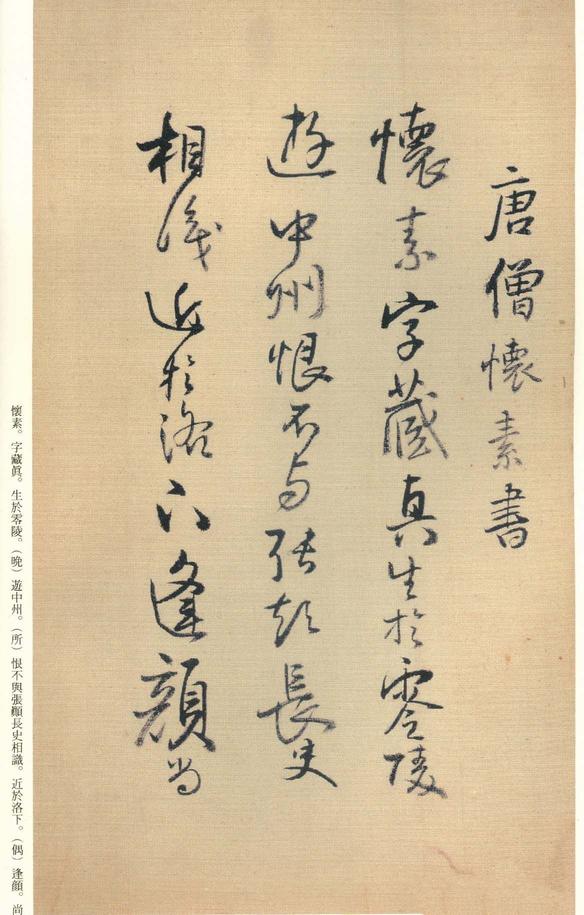 唐僧懷素書
懷素字藏真生於零陵
遊中州恨不与張顛長史
相識近於洛下逢顏尚
懷素。字藏眞。生於零陵。（晚）遊中州。（所）恨不與張顚長史相識。近於洛下。（偶）逢顏。尚